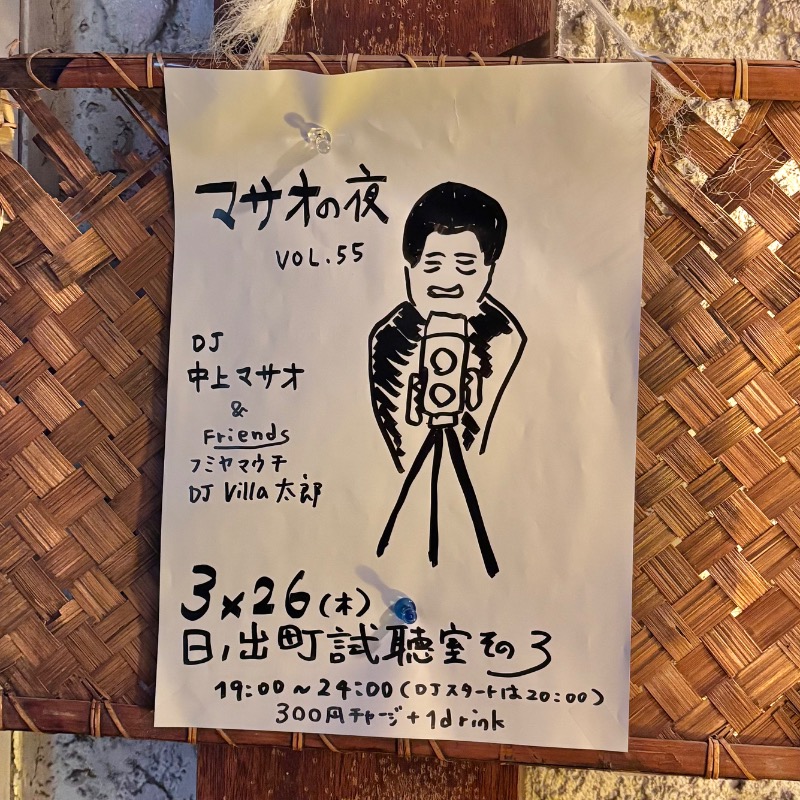 マサオの夜
VOL.55
DJ
中上マサオ
&
Friends
フミヤマウチ
DJ Villa太郎
3×26(木)
日ノ出町試聴室その3
19:00~24:00(DJスタートは20:00)
300円チャージ+1drink